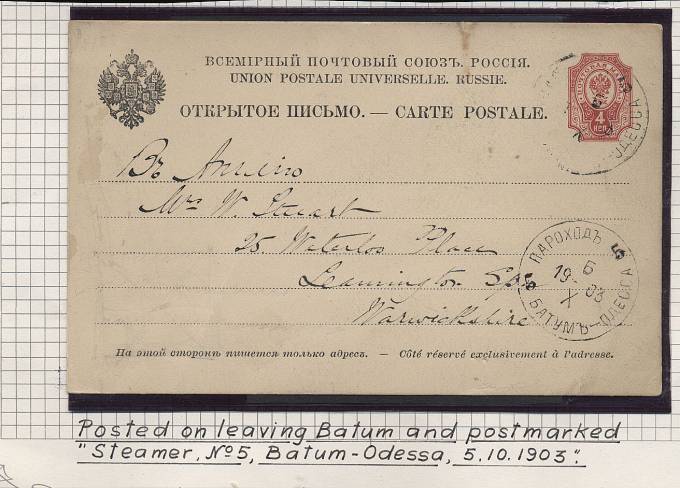 ВСЕМІРНЫЙ ПОЧТОВЫЙ СОЮЗЪ. РОССІЯ.
UNION POSTALE UNIVERSELLE. RUSSIE.
ОТКРЫТОЕ ПИСЬМО. — CARTE POSTALE.
4
КОП.
ОДЕССА
Въ Англію
Mrs W. Stuart
25 Waterloo Place
Leamington Spa
Warwickshire
ПАРОХОДЪ 5
Б
19 03
X
БАТУМЪ — ОДЕССА
На этой сторонѣ пишется только адресъ. — Côté réservé exclusivement à l'adresse.
Posted on leaving Batum and postmarked
"Steamer, №5, Batum-Odessa, 5.10.1903".